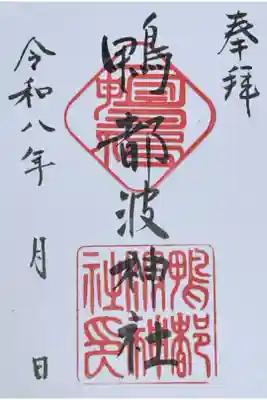 奉拝
鴨都波神社
鴨都
波神
社印
令和八年 月 日